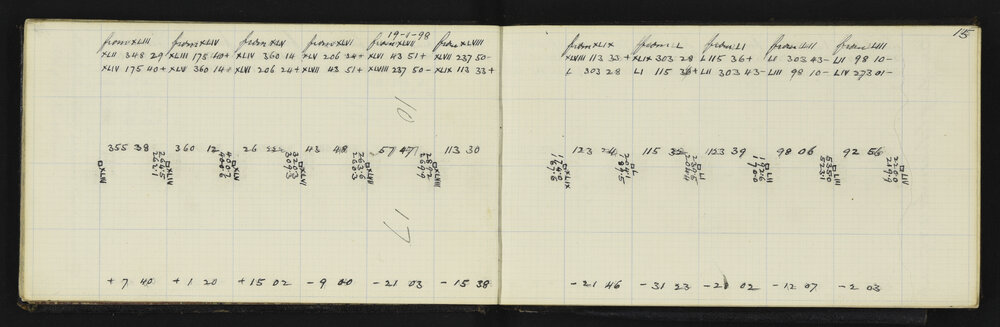 19-1-98
15
from XLIII from XLIV from XLV from XLVI from XLVII from XLVIII
XLII 348 29 + XLIII 175 40 + XLIV 360 14 XLV 206 24 + XLVI 43 51 + XLVII 237 50 -
XLIV 175 40 + XLV 360 14 + XLVI 206 24 + XLVII 43 51 + XLVIII 237 50 - XLIX 113 33 +
10
355 38 360 12 26 22 43 48 57 47 113 30
XLIII
XLIV
XLV
XLVI
XLVII
XLVIII
17
+ 7 40 + 1 20 + 15 02 - 9 00 - 21 03 - 15 38
from XLIX from L from LI from LII from LIII
XLVIII 113 33 + XLIX 303 28 L 115 36 + LI 303 43 - LII 98 10 -
L 303 28 LI 115 36 + LII 303 43 - LIII 98 10 - LIV 273 01 -
123 24 115 32 123 39 98 06 92 56
XLIX
L
LI
LII
LIII
LIV
- 21 46 - 31 23 - 21 02 - 12 07 - 2 03